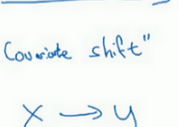 Covariate shift"
X → y